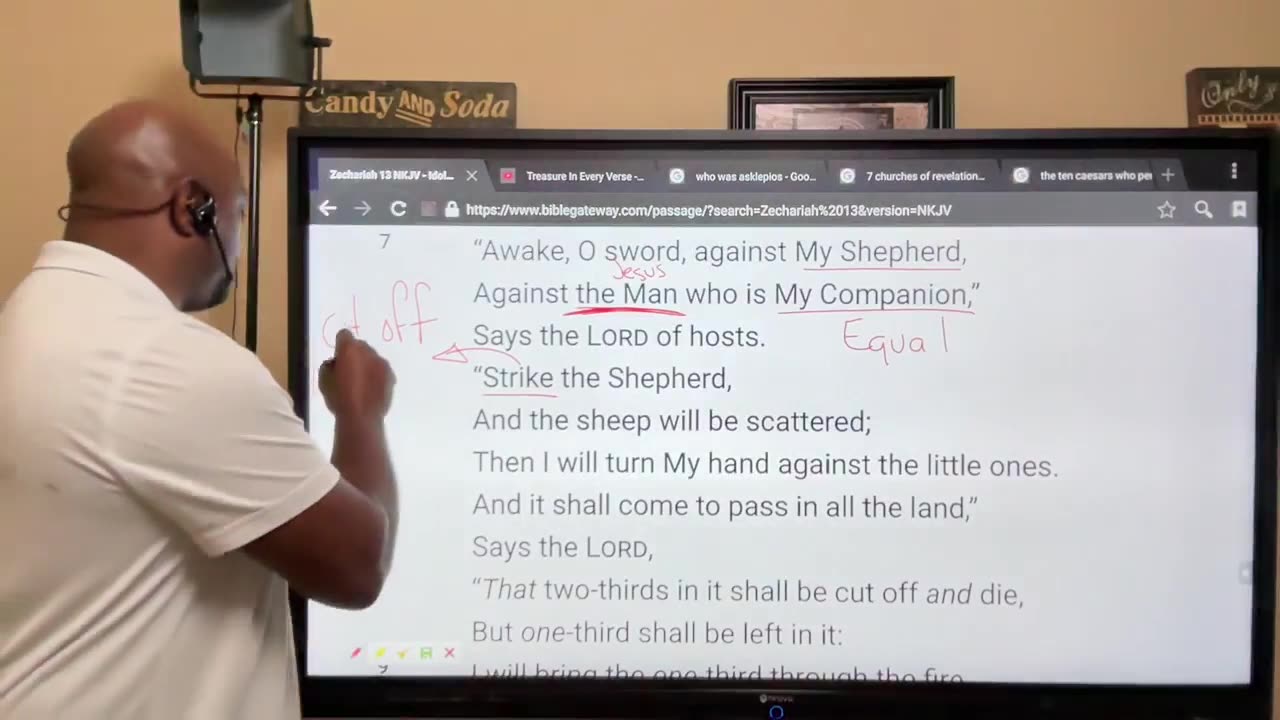 Candy AND Soda
Only
Zechariah 13 NKJV - Idol...
Treasure In Every Verse -...
who was asklepios - Goo...
7 churches of revelation...
the ten caesars who per
https://www.biblegateway.com/passage/?search=Zechariah%2013&version=NKJV
7
“Awake, O sword, against My Shepherd,
Jesus
Against the Man who is My Companion,”
cut off
Says the LORD of hosts.
Equal
“Strike the Shepherd,
And the sheep will be scattered;
Then I will turn My hand against the little ones.
And it shall come to pass in all the land,”
Says the LORD,
“That two-thirds in it shall be cut off and die,
But one-third shall be left in it:
I will bring the one third through the fire